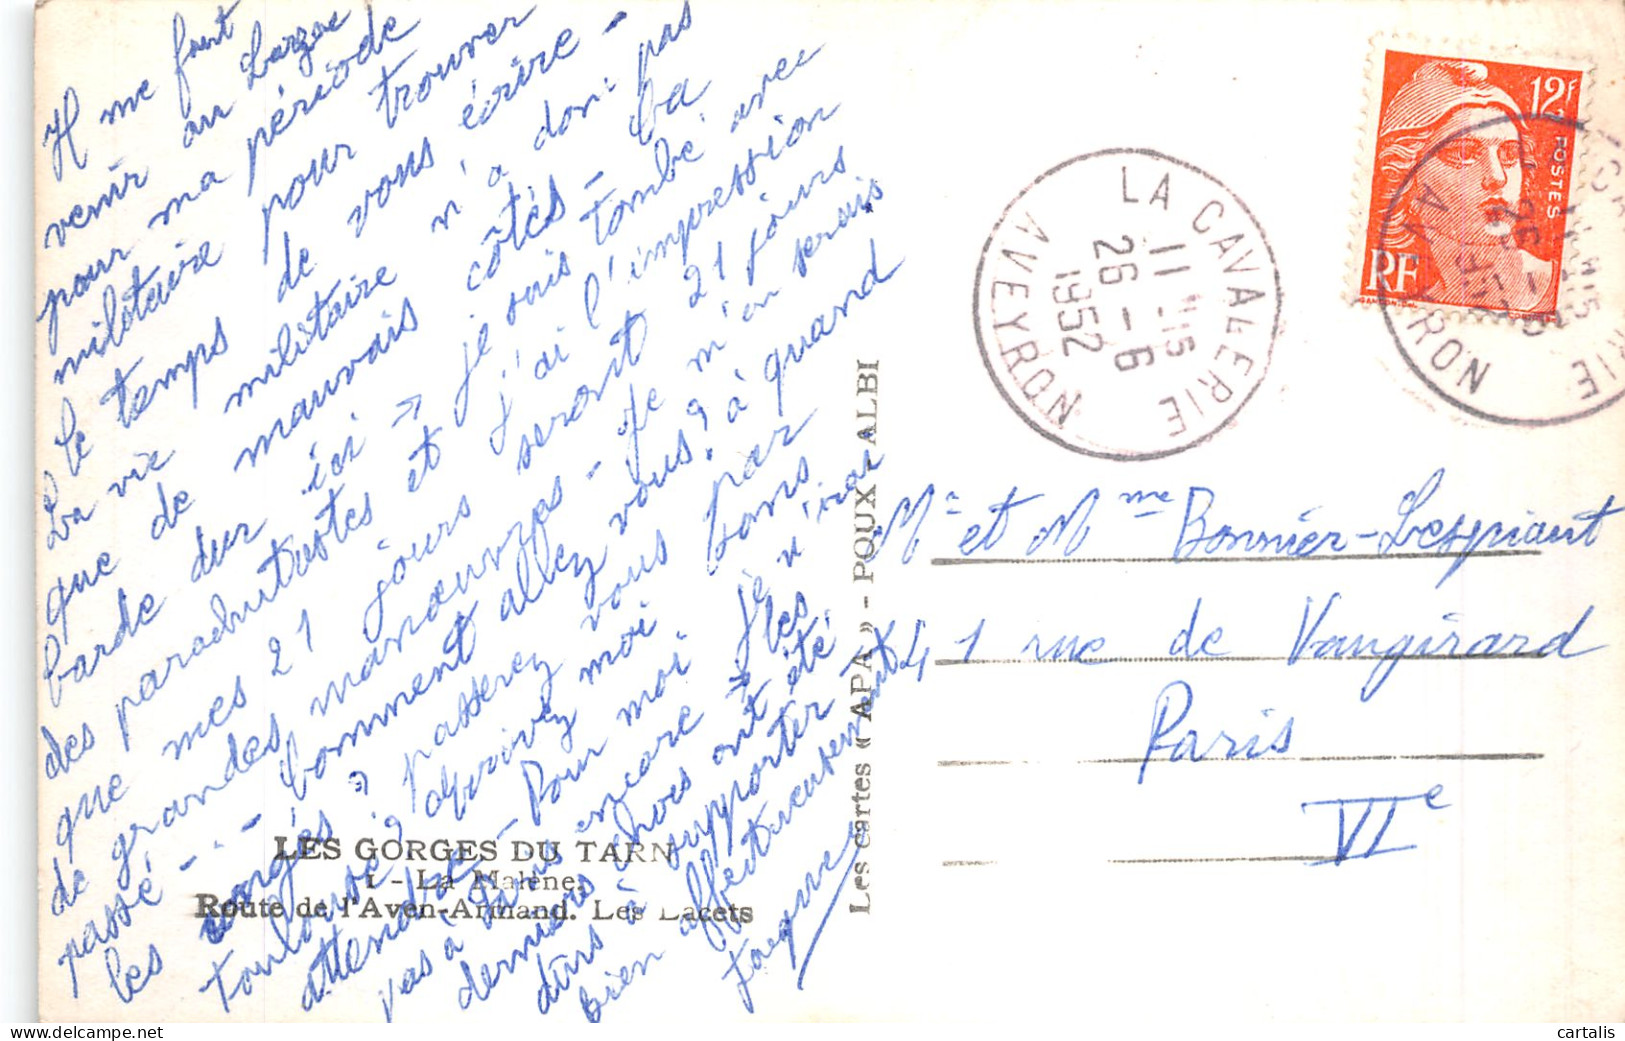 Il me faut
venir au Larzac
pour ma période
militaire pour trouver
le temps de vous écrire -
La vie militaire n'a donc pas
que de mauvais côtés - La
barde dur ici → je suis tombé avec
des parachutistes et j'ai l'impression
que mes 21 jours seront 21 jours
de grandes manœuvres - Je m'en serais
passé - - Comment allez vous? à quand
les congés? passerez vous par
Toulouse? écrivez moi sans
attendre - Pour moi je n'irai
pas à Paris encore → les
derniers choses ont été
durs à supporter
bien affectueusement
Jacques
LES GORGES DU TARN
1 - La Malène.
Route de l'Aven-Armand. Les Lacets
Les cartes « APA » - POUX - ALBI
LA CAVALERIE
11 H15
26 - 6
1952
AVEYRON
12F
POSTES
RF
Mr et Mme Bonnier-Lespiaut
41 rue de Vaugirard
Paris
VIe
cartalis
www.delcampe.net